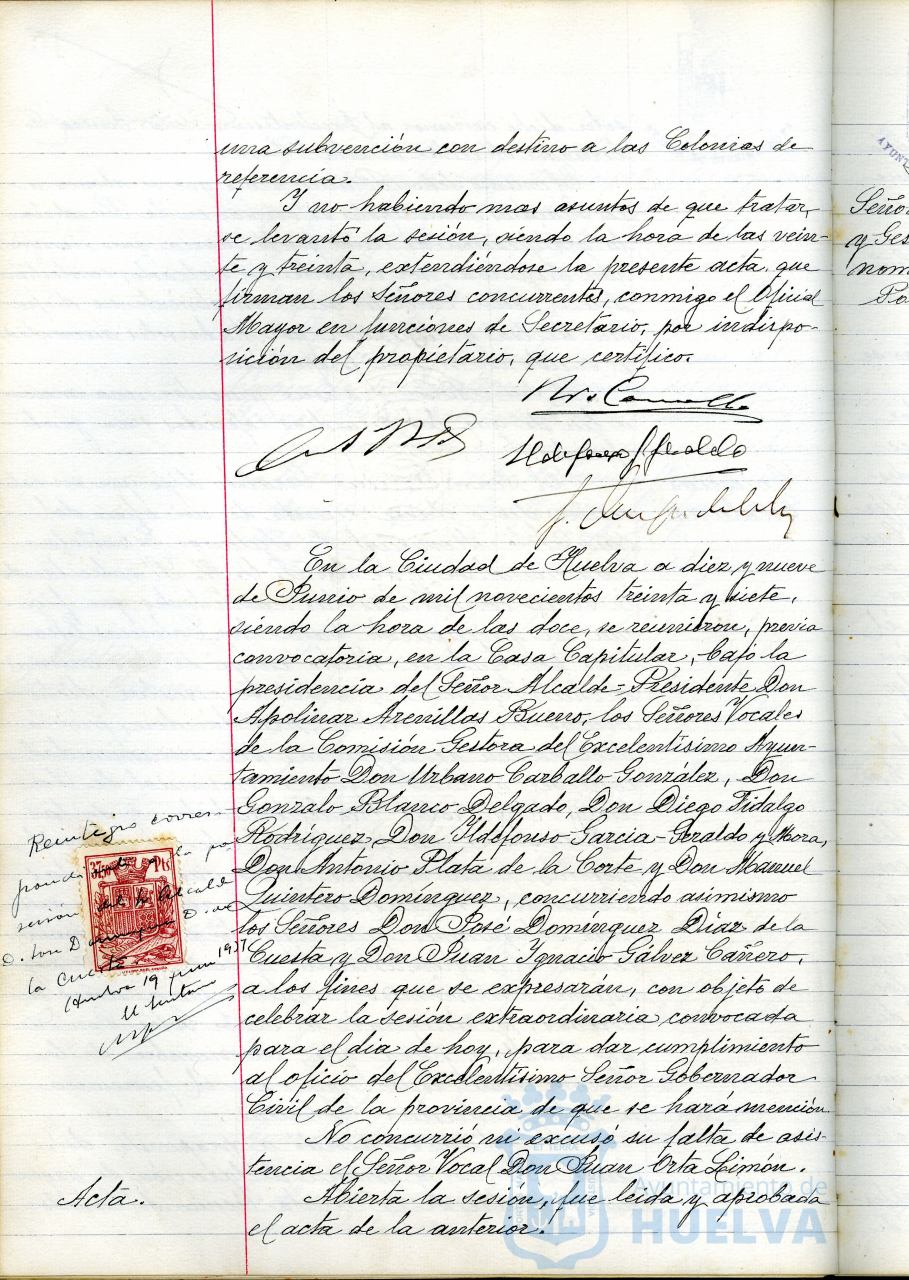 una subvención con destino a las Colonias de
referencia.
Y no habiendo mas asuntos de que tratar,
se levantó la sesión, siendo la hora de las vein-
te y treinta, extendiéndose la presente acta que
firman los Señores concurrentes, conmigo el Oficial
Mayor en funciones de Secretario, por indispo-
sición del propietario, que certifico.
En la Ciudad de Huelva a diez y nueve
de Junio de mil novecientos treinta y siete,
siendo la hora de las doce, se reunieron, previa
convocatoria, en la Casa Capitular, bajo la
presidencia del Señor Alcalde-Presidente Don
Apolinar Arenillas Bueno, los Señores Vocales
de la Comisión Gestora del Excelentísimo Ayun-
tamiento Don Urbano Carballo González, Don
Gonzalo Blanco Delgado, Don Diego Fidalgo
Rodríguez, Don Ildefonso Garcia-Geraldo y Mora,
Don Antonio Plata de la Corte y Don Manuel
Quintero Domínguez, concurriendo asimismo
los Señores Don José Domínguez Díaz de la
Cuesta y Don Juan Ygnacio Gálvez Cañero,
a los fines que se expresarán, con objeto de
celebrar la sesión extraordinaria convocada
para el dia de hoy, para dar cumplimiento
al oficio del Excelentísimo Señor Gobernador
Civil de la provincia de que se hará mención.
No concurrió ni excusó su falta de asis-
tencia el Señor Vocal Don Juan Orta Limón.
Acta. Abierta la sesión, fue leida y aprobada
el acta de la anterior.
Reintegro corres-
la po
sesión Alcalde
la Cuesta
Huelva 19 junio 1937
Pts
Señor
y Ges
nom
Ayuntamiento de
HUELVA